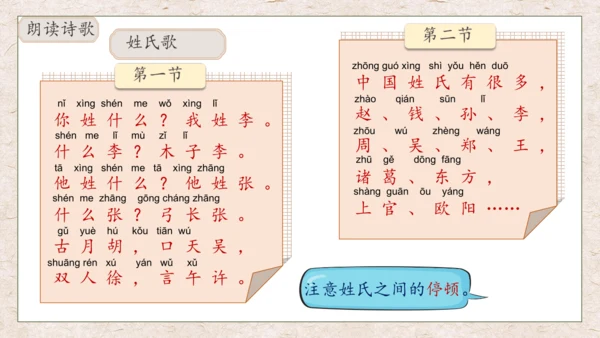 朗读诗歌
姓氏歌
第一节
nǐ xìng shén me wǒ xìng lǐ
你姓什么？我姓李。
shén me lǐ mù zǐ lǐ
什么李？木子李。
tā xìng shén me tā xìng zhāng
他姓什么？他姓张。
shén me zhāng gōng cháng zhāng
什么张？弓长张。
gǔ yuè hú kǒu tiān wú
古月胡，口天吴，
shuāng rén xú yán wǔ xǔ
双人徐，言午许。
第二节
zhōng guó xìng shì yǒu hěn duō
中国姓氏有很多，
zhào qián sūn lǐ
赵、钱、孙、李，
zhōu wú zhèng wáng
周、吴、郑、王，
zhū gě dōng fāng
诸葛、东方，
shàng guān ōu yáng
上官、欧阳……
注意姓氏之间的停顿。